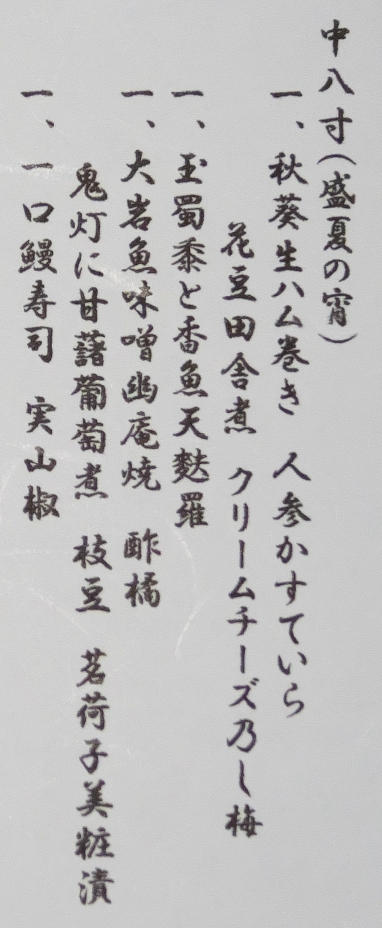 中八寸(盛夏の宵)
一、秋葵生ハム巻き 人参かすていら
花豆田舎煮 クリームチーズ乃し梅
一、玉蜀黍と香魚天麩羅
一、大岩魚味噌幽庵焼 酢橘
鬼灯に甘藷葡萄煮 枝豆 茗荷子美粧漬
一、一口鰻寿司 実山椒